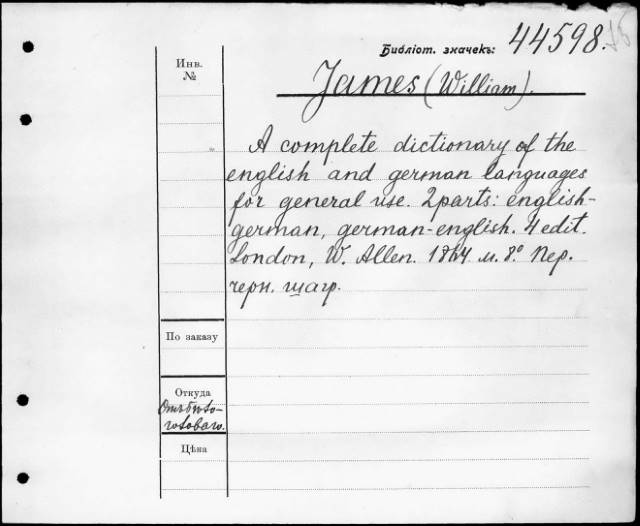 Библіот. значекъ: 44598.
Инв.
№
James (William).
A complete dictionary of the
english and german languages
for general use. 2 parts: english-
german, german-english. 4 edit.
London, W. Allen. 1864 м. 8° Пер.
черн. шагр.
По заказу
Откуда
Цѣна